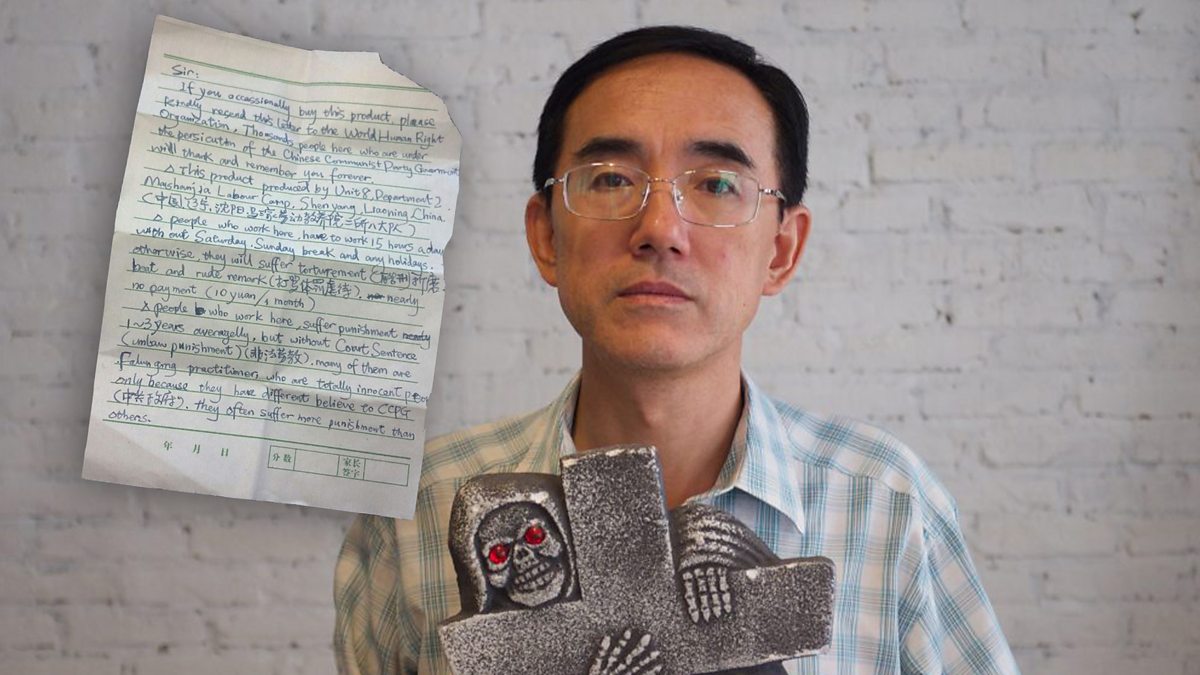 Sir:
If you occassionally buy this product, please
kindly resend this letter to the World Human Right
Organization. Thousands people here who are under
the persicution of the Chinese Communist Party Government
will thank and remember you forever.
This product produced by Unit 8, Department 2
Mashanjia Labour Camp, Shen yang, Liaoning, China.
(中国, 沈阳, 马三家劳动教养院二所八大队)
people who work here, have to work 15 hours a day
with out Saturday, Sunday break and any holidays,
otherwise, they will suffer torturement (折磨),
beat and rude remark (打骂体罚虐待), nearly
no payment (10 yuan/1 month)
people who work here, suffer punishment
1~3 years averagelly, but without Court Sentence
(unlaw punishment) (非法劳教). many of them are
Falungong practitioner, who are totally innocent
only because they have different believe to CCPG
(中共政府), they often suffer more punishment than
others.
年 月 日
分数 家长签字